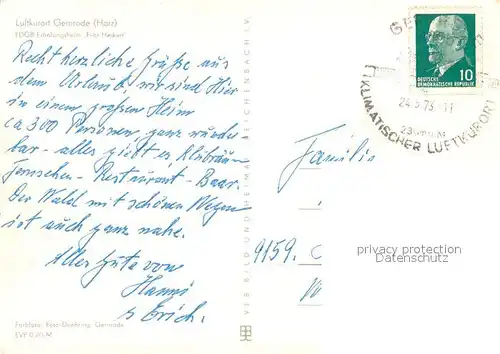 Luftkurort Gernrode (Harz)
FDGB-Erholungsheim „Fritz Heckert"
Recht herzliche Grüße aus
dem Urlaub, wir sind Hier
in einem großen Heim
ca 300 Personen ganz wunder
bar - alles giebt es Klubräume
Fernsehen - Restaurant - Baar
Der Wald mit schönen Wegen
ist auch ganz nahe.
Alles Gute von
Hanni
u Erich.
Farbfoto: Gernrode
EVP 0,20 M
VEB BILD UND HEIMAT REICHENBACH I. V.
DEUTSCHE
DEMOKRATISCHE REPUBLIK 10
KLIMATISCHER LUFTKURORT
Familie
9159. C
privacy protection
Datenschutz